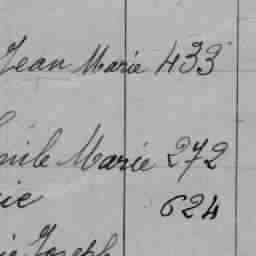 Jean Marie 433
Marie 272
624
Joseph